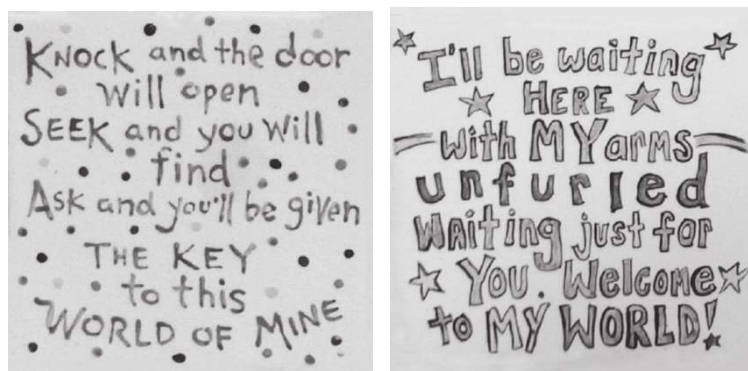 KNOCK and the door
will open
SEEK and you will
find
Ask and you'll be given
THE KEY
to this
WORLD OF MINE
I'll be waiting
HERE
with MY arms
unfurled
Waiting just for
You. Welcome
to MY WORLD!